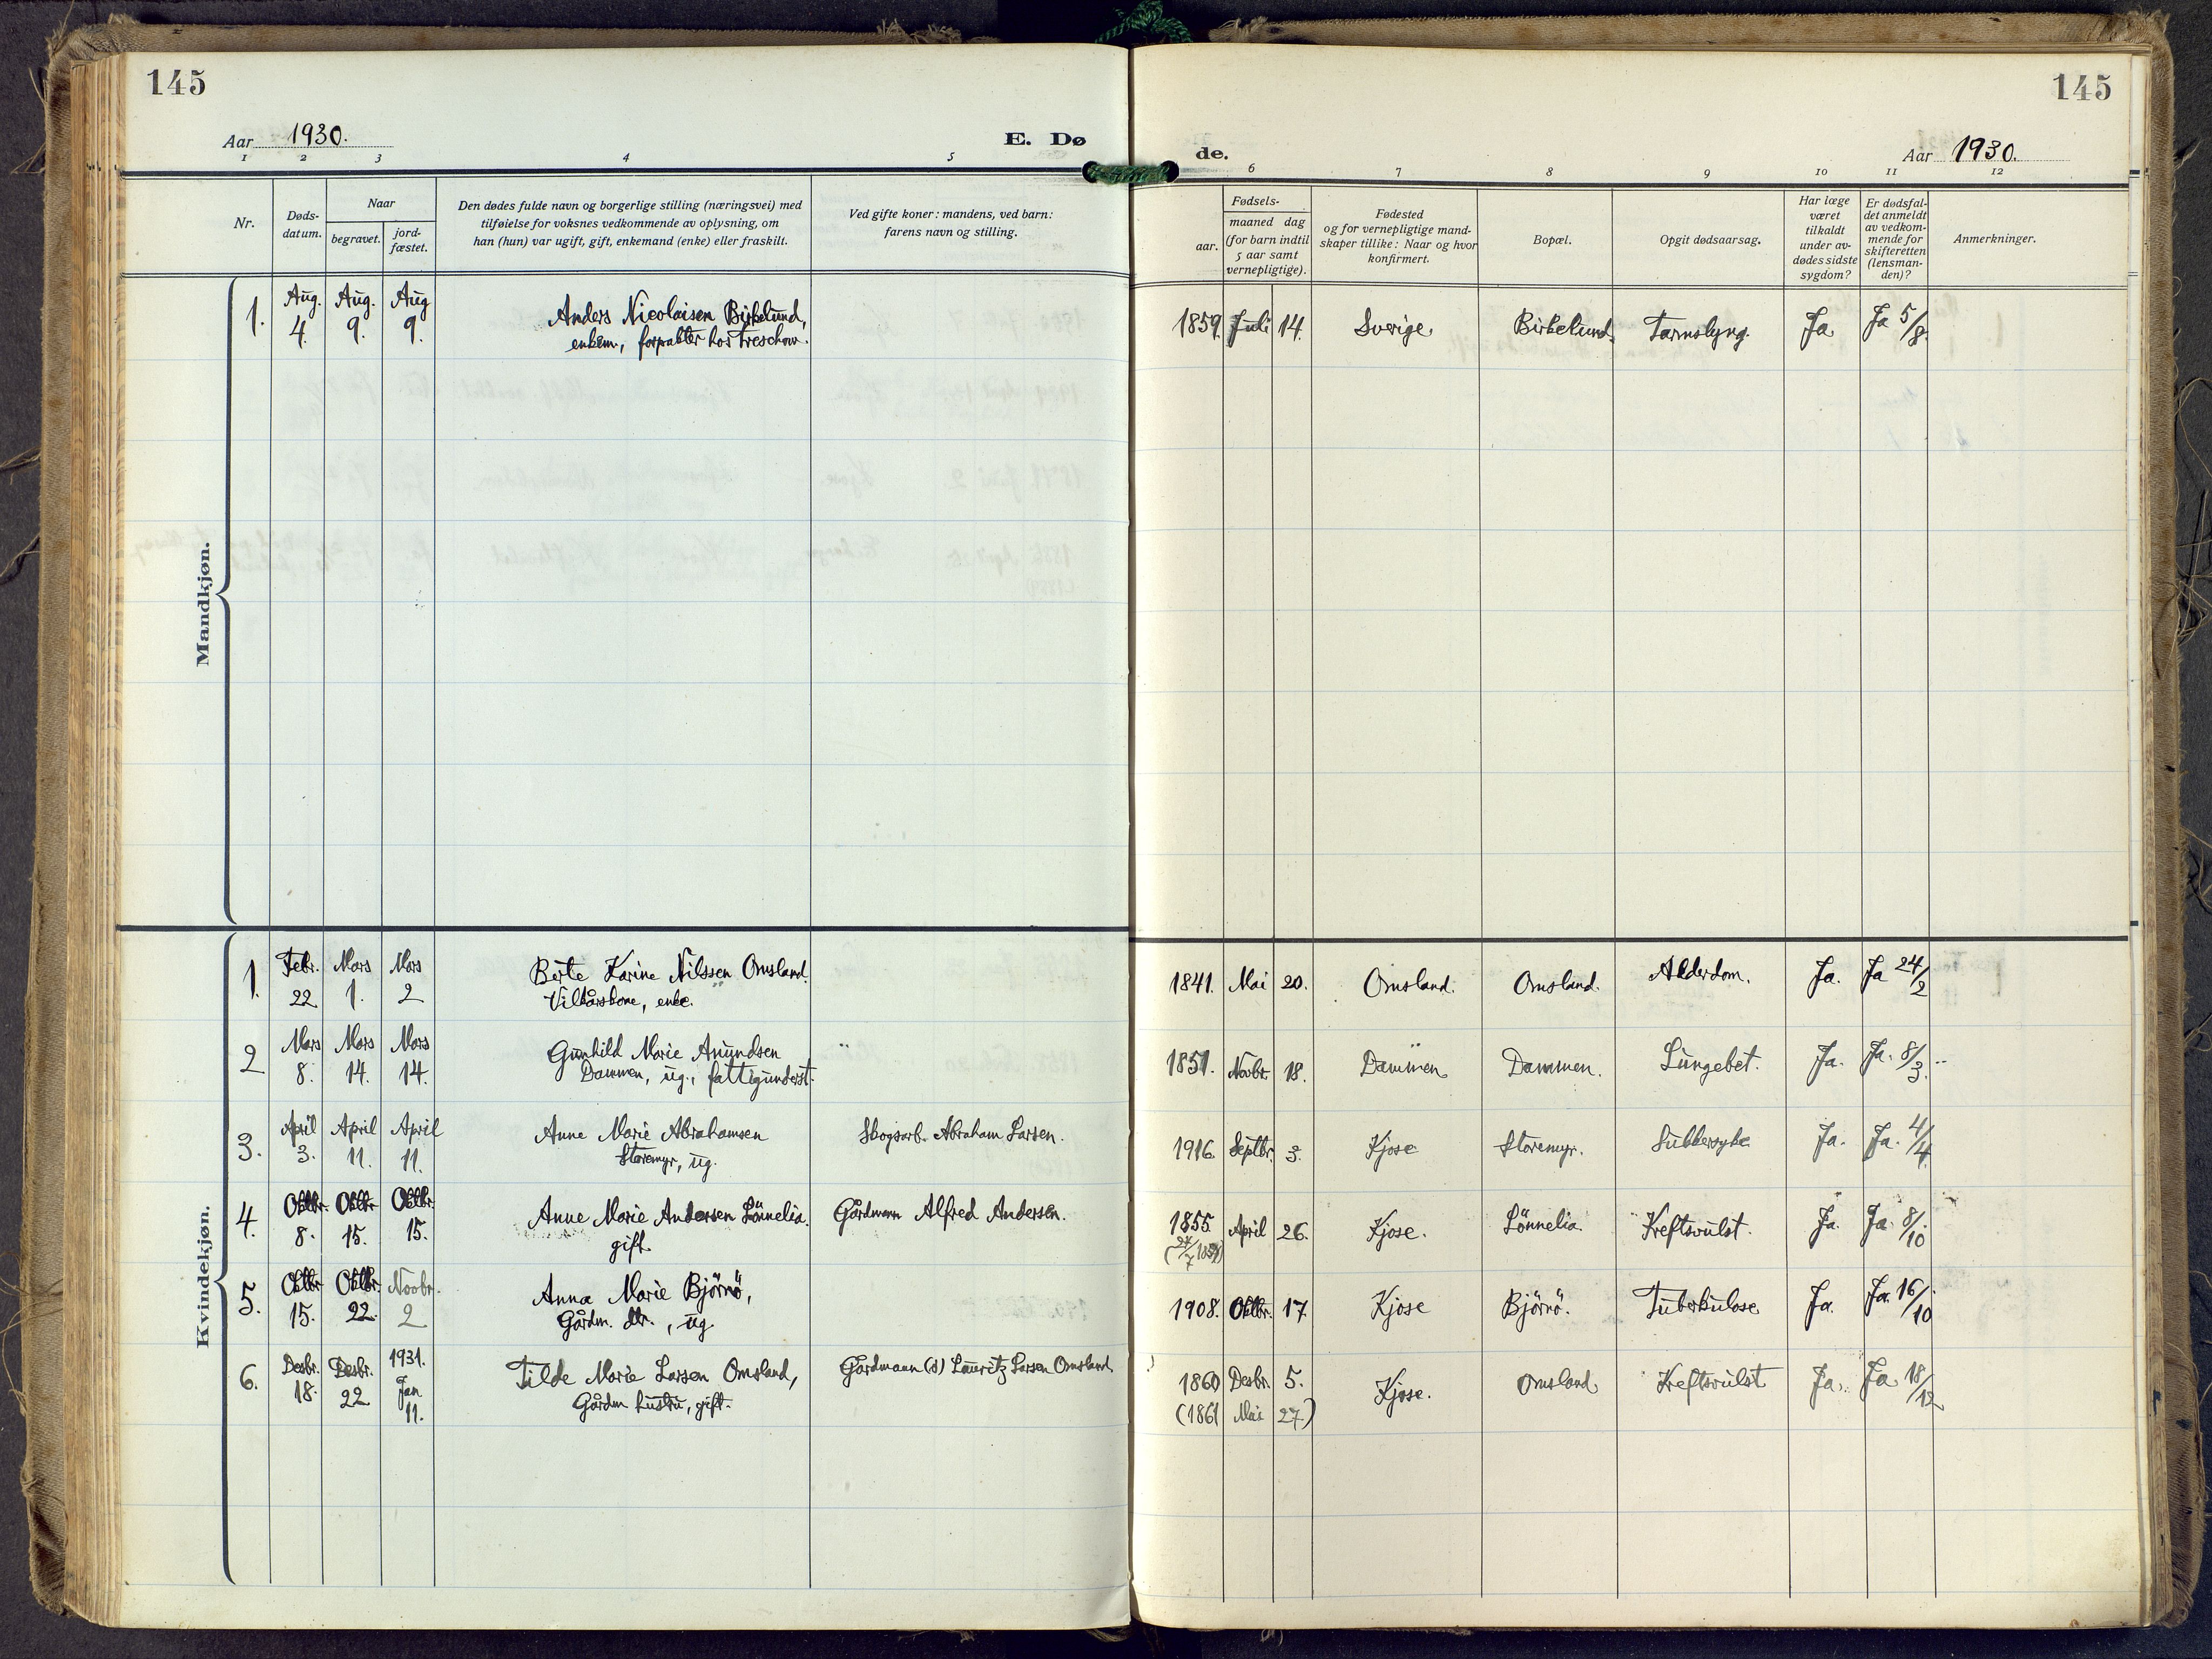 145
Aar 1930.
E. Dø
1 2 3 4 5
Nr.
Døds-
datum.
Naar
begravet.
jord-
fæstet.
Den dødes fulde navn og borgerlige stilling (næringsvei) med
tilføielse for voksnes vedkommende av oplysning, om
han (hun) var ugift, gift, enkemand (enke) eller fraskilt.
Ved gifte koner: mandens, ved barn:
farens navn og stilling.
Mandkjøn.
1. Aug. 4. Aug. 9. Aug 9.
Anders Nicolaisen Birkelund,
enkem., forpakter hos Treschow.
Kvindekjøn.
1. Febr. 22 Mars 1. Mars 2
Berte Karine Nilssen Omsland.
Vilkårskone, enke.
2 Mars 8. Mars 14. Mars 14.
Gunhild Marie Amundsen
Dammen, ug., fattigunderst.
3. April 3. April 11. April 11.
Anne Marie Abrahamsen
Storemyr, ug.
Skogsarb. Abraham Larsen.
4. Oktbr. 8. Oktbr. 15. Oktbr. 15.
Anne Marie Andersen Lönnelia.
gift.
Gårdmann Alfred Andersen.
5. Oktbr 15. Oktbr. 22. Novbr. 2
Anna Marie Björnö,
Gårdm. dtr., ug.
6. Desbr. 18. Desbr. 22 1931. Jan 11.
Tilde Marie Larsen Omsland,
Gårdm hustru, gift.
Gårdmann (d) Lauritz Larsen Omsland.
145
de.
Aar 1930.
6 7 8 9 10 11 12
aar.
Fødsels-
maaned dag
(for barn indtil
5 aar samt
vernepligtige).
Fødested
og for vernepligtige mand-
skaper tillike: Naar og hvor
konfirmert.
Bopæl.
Opgit dødsaarsag.
Har læge
været
tilkaldt
under av-
dødes sidste
sygdom?
Er dødsfal-
det anmeldt
av vedkom-
mende for
skifteretten
(lensman-
den)?
Anmerkninger.
1859. Juli 14. Sverige. Birkelund. Tarmslyng. Ja. Ja 5/8.
1841. Mai 20. Omsland. Omsland. Alderdom. Ja. Ja 24/2
1851. Novbr. 18. Dammen Dammen. Lungebet. Ja. Ja. 8/3.
1916. Septbr. 3. Kjose Storemyr. Sukkersyke Ja. Ja. 4/4
1855. April 26. Kjose. Lönnelia. Kreftsvulst. Ja. Ja. 8/10
1908. Oktbr. 17. Kjose Björnö. Tuberkulose Ja. Ja. 16/10
1860 Desbr. 5. Kjose. Omsland Kreftsvulst Ja. Ja. 18/12
(1861 Mai 27.)